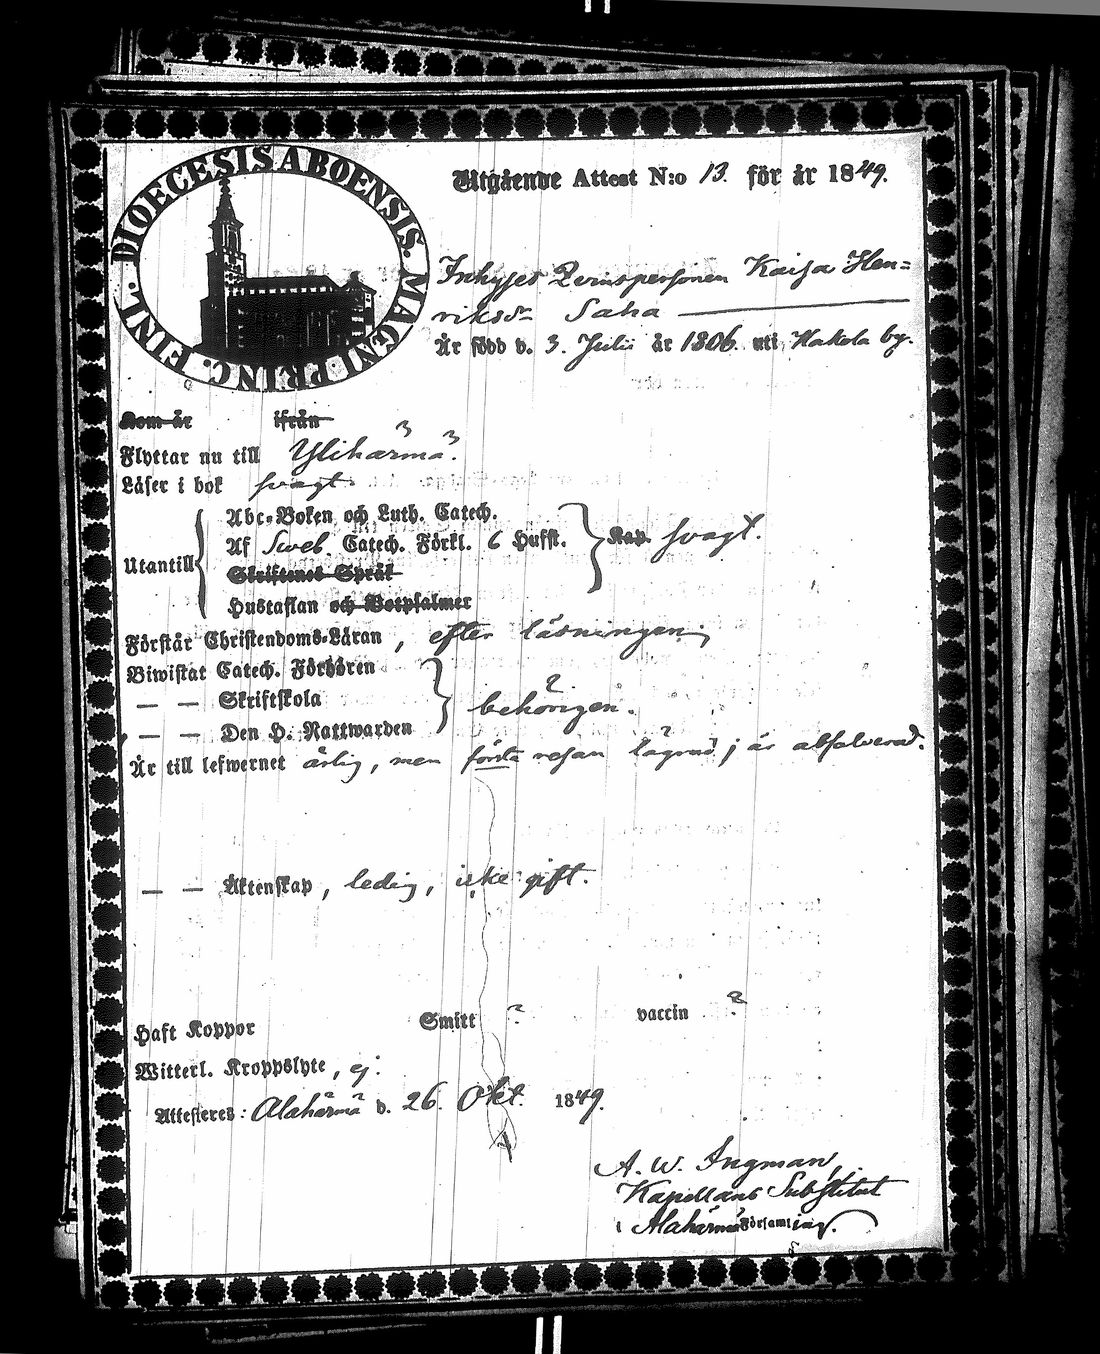 DIOECESIS ABOENSIS. MAGNI. PRINC. FINL.
Utgående Attest N:o 13. för år 1849.
Inhyses Qvinspersonen Kaisa Hen=
riksdr Saha
Är född d. 3. Julii år 1806. uti Hakola by.
Kom år ifrån
Flyttar nu till Ylihärmä.
Läser i bok svagt.
Abc-Boken och Luth. Catech.
Af Sweb. Catech. Förkl. 6 Hufst. Kap. svagt.
Utantill
Skriftenes Språk
Hustaflan och Botpsalmer
Förstår Christendoms-Läran, efter läsningen,
Biwistat Catech. Förhören
— — Skriftskola behörigen.
— — Den H. Nattwarden
Är till lefwernet ärlig, men första resan lägrad; är absolverad.
— — Äktenskap, ledig, icke gift.
Haft Koppor Smitt ? vaccin ?
Witterl. Kroppslyte, ej.
Attesteres: Alahärmä d. 26. Okt. 1849.
A. W. Ingman,
Kapellans Substitut
i Alahärmä Församling.